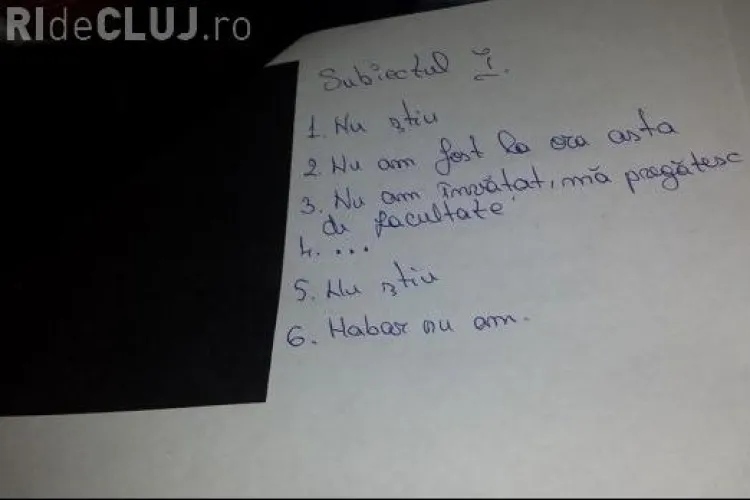 RIdeCLUJ.ro
Subiectul I.
1. Nu știu
2. Nu am fost la ora asta
3. Nu am învățat, mă pregătesc
de facultate
4. ...
5. Nu știu
6. Habar nu am.